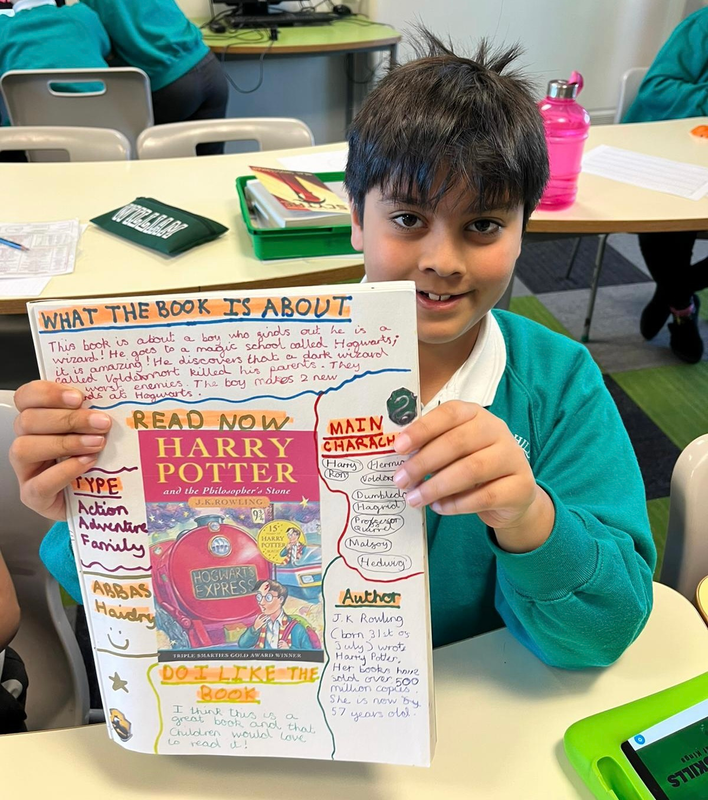 WHAT THE BOOK IS ABOUT
This book is about a boy who finds out he is a
wizard! He goes to a magic school called Hogwarts;
it is amazing! He discovers that a dark wizard
called Voldemort killed his parents. They
worst enemies. The boy makes 2 new
at Hogwarts.
READ NOW
HARRY
POTTER
and the Philosopher's Stone
J.K. ROWLING
9¾
15
HARRY
POTTER
HOGWARTS
EXPRESS
TRIPLE SMARTIES GOLD AWARD WINNER
TYPE
Action
Adventure
Family
ABBAS
Haidry
DO I LIKE THE
BOOK
I think this is a
great book and that
Children would love
to read it!
MAIN
CHARACH
Harry
Ron
Voldo
Dumbledo
Hagrid
Professor
Malfoy
Hedwig
Author
J.K Rowling
(born 31st of
July) wrote
Harry Potter.
Her books have
sold over 500
million copies.
She is now
57 years old.
WILLIAM
SKILLS